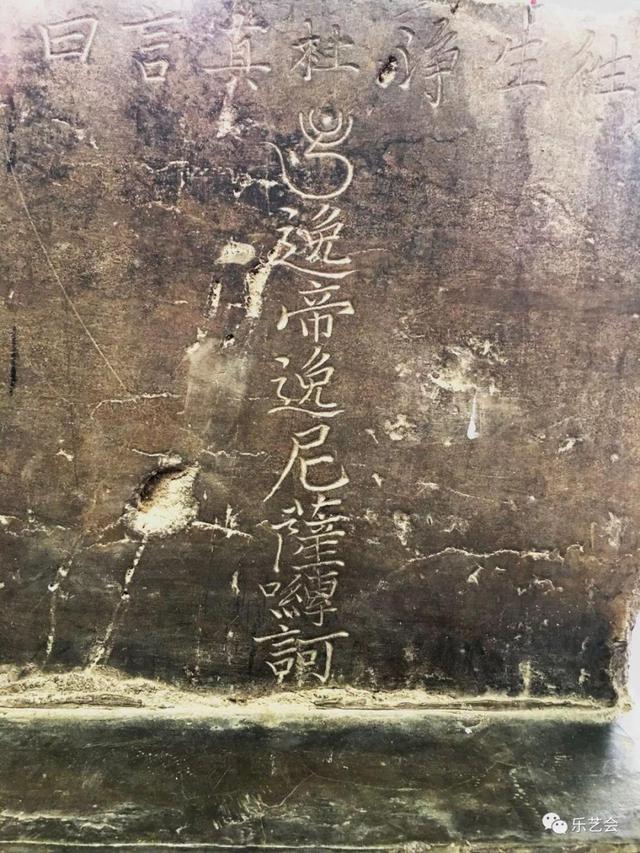 往生淨杜真言曰
逸帝逸尼薩嚩訶
乐艺会